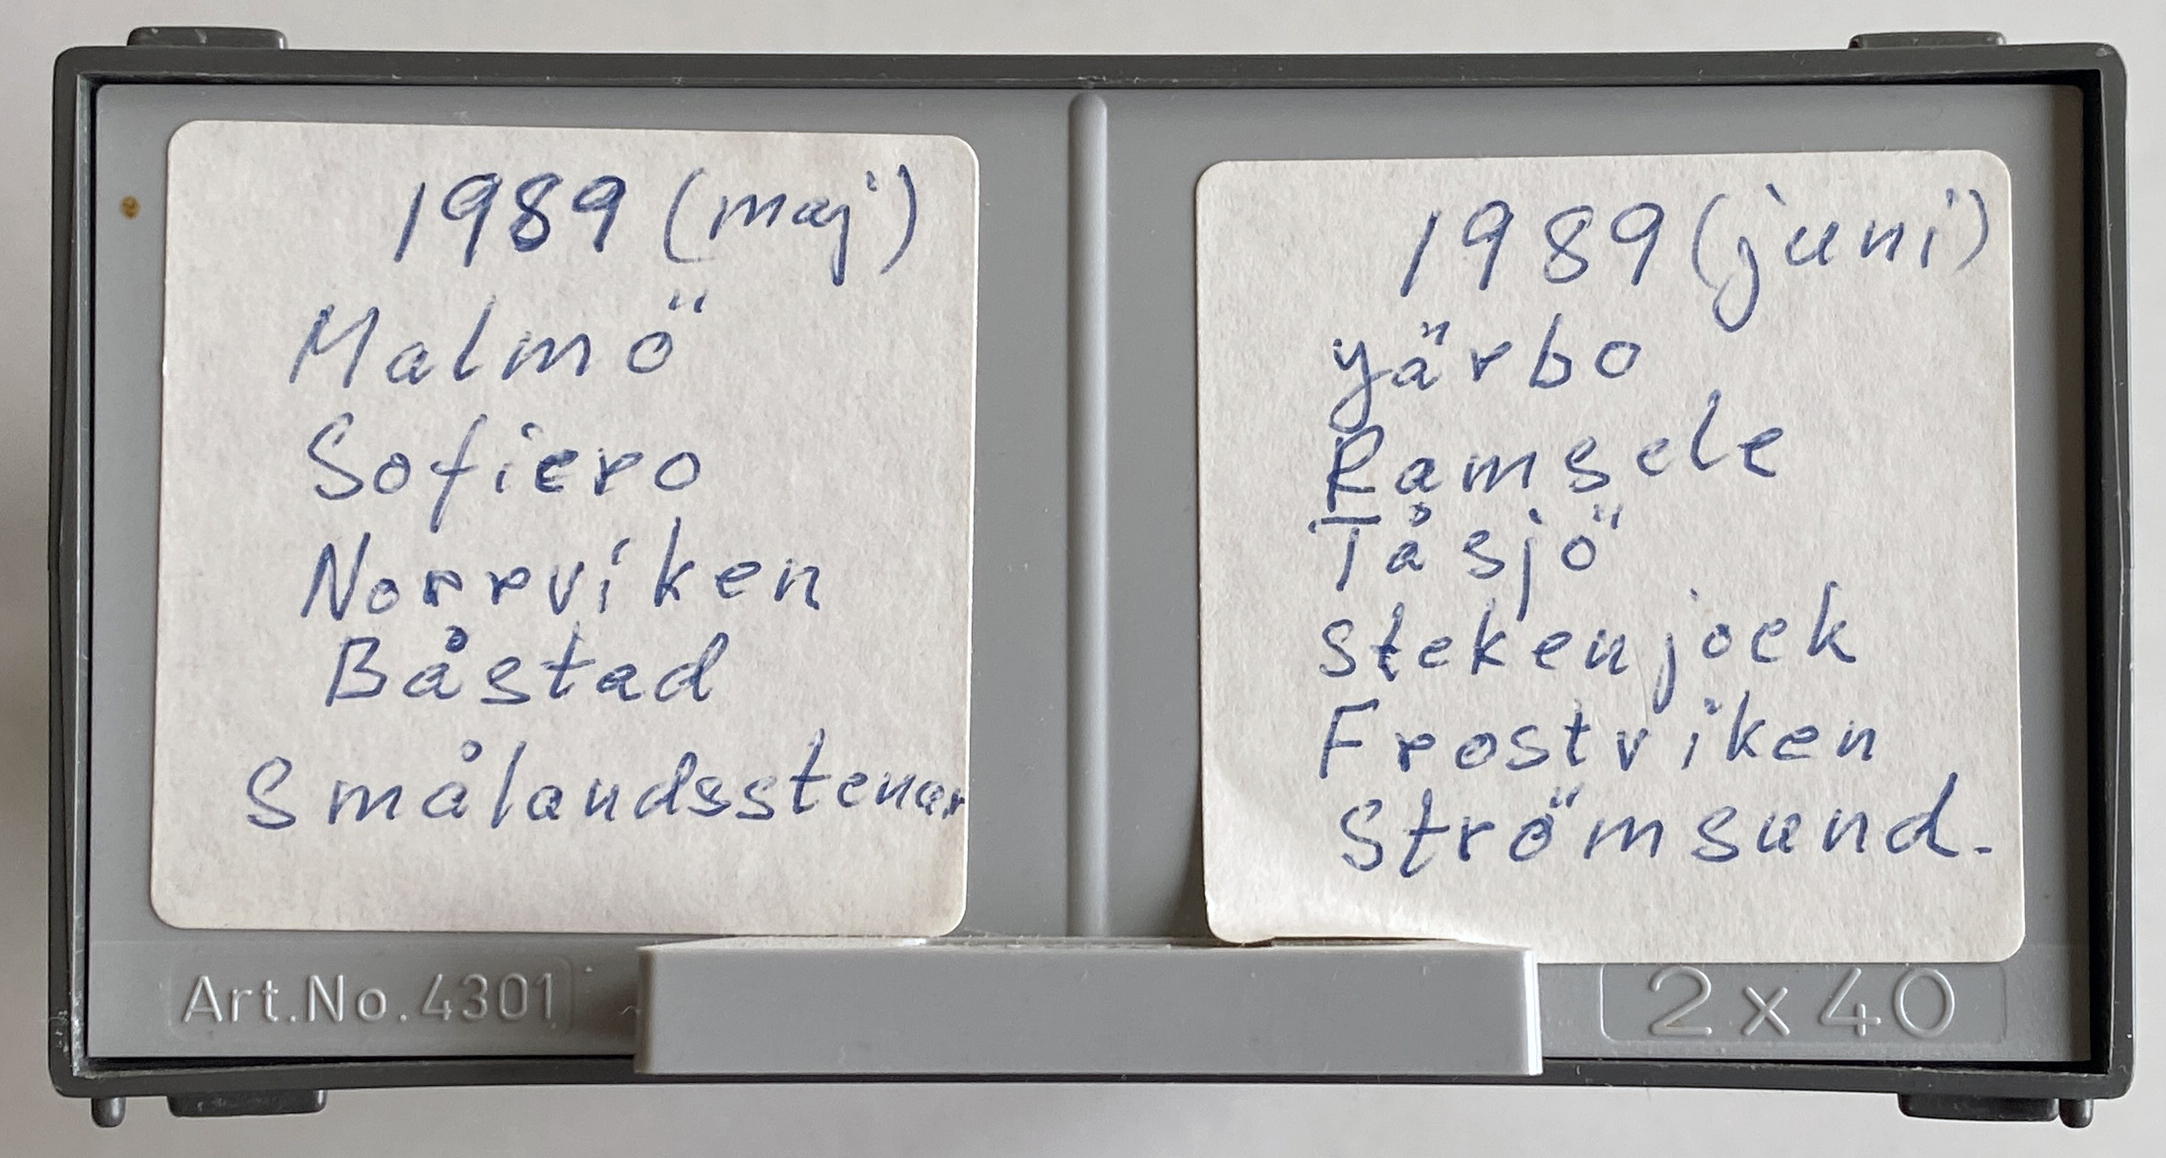 1989 (maj)
Malmö
Sofiero
Norrviken
Båstad
Smålandsstenar
1989 (juni)
yärbo
Ramsele
Tåsjö
Stekenjock
Frostviken
Strömsund.
Art.No.4301
2x40